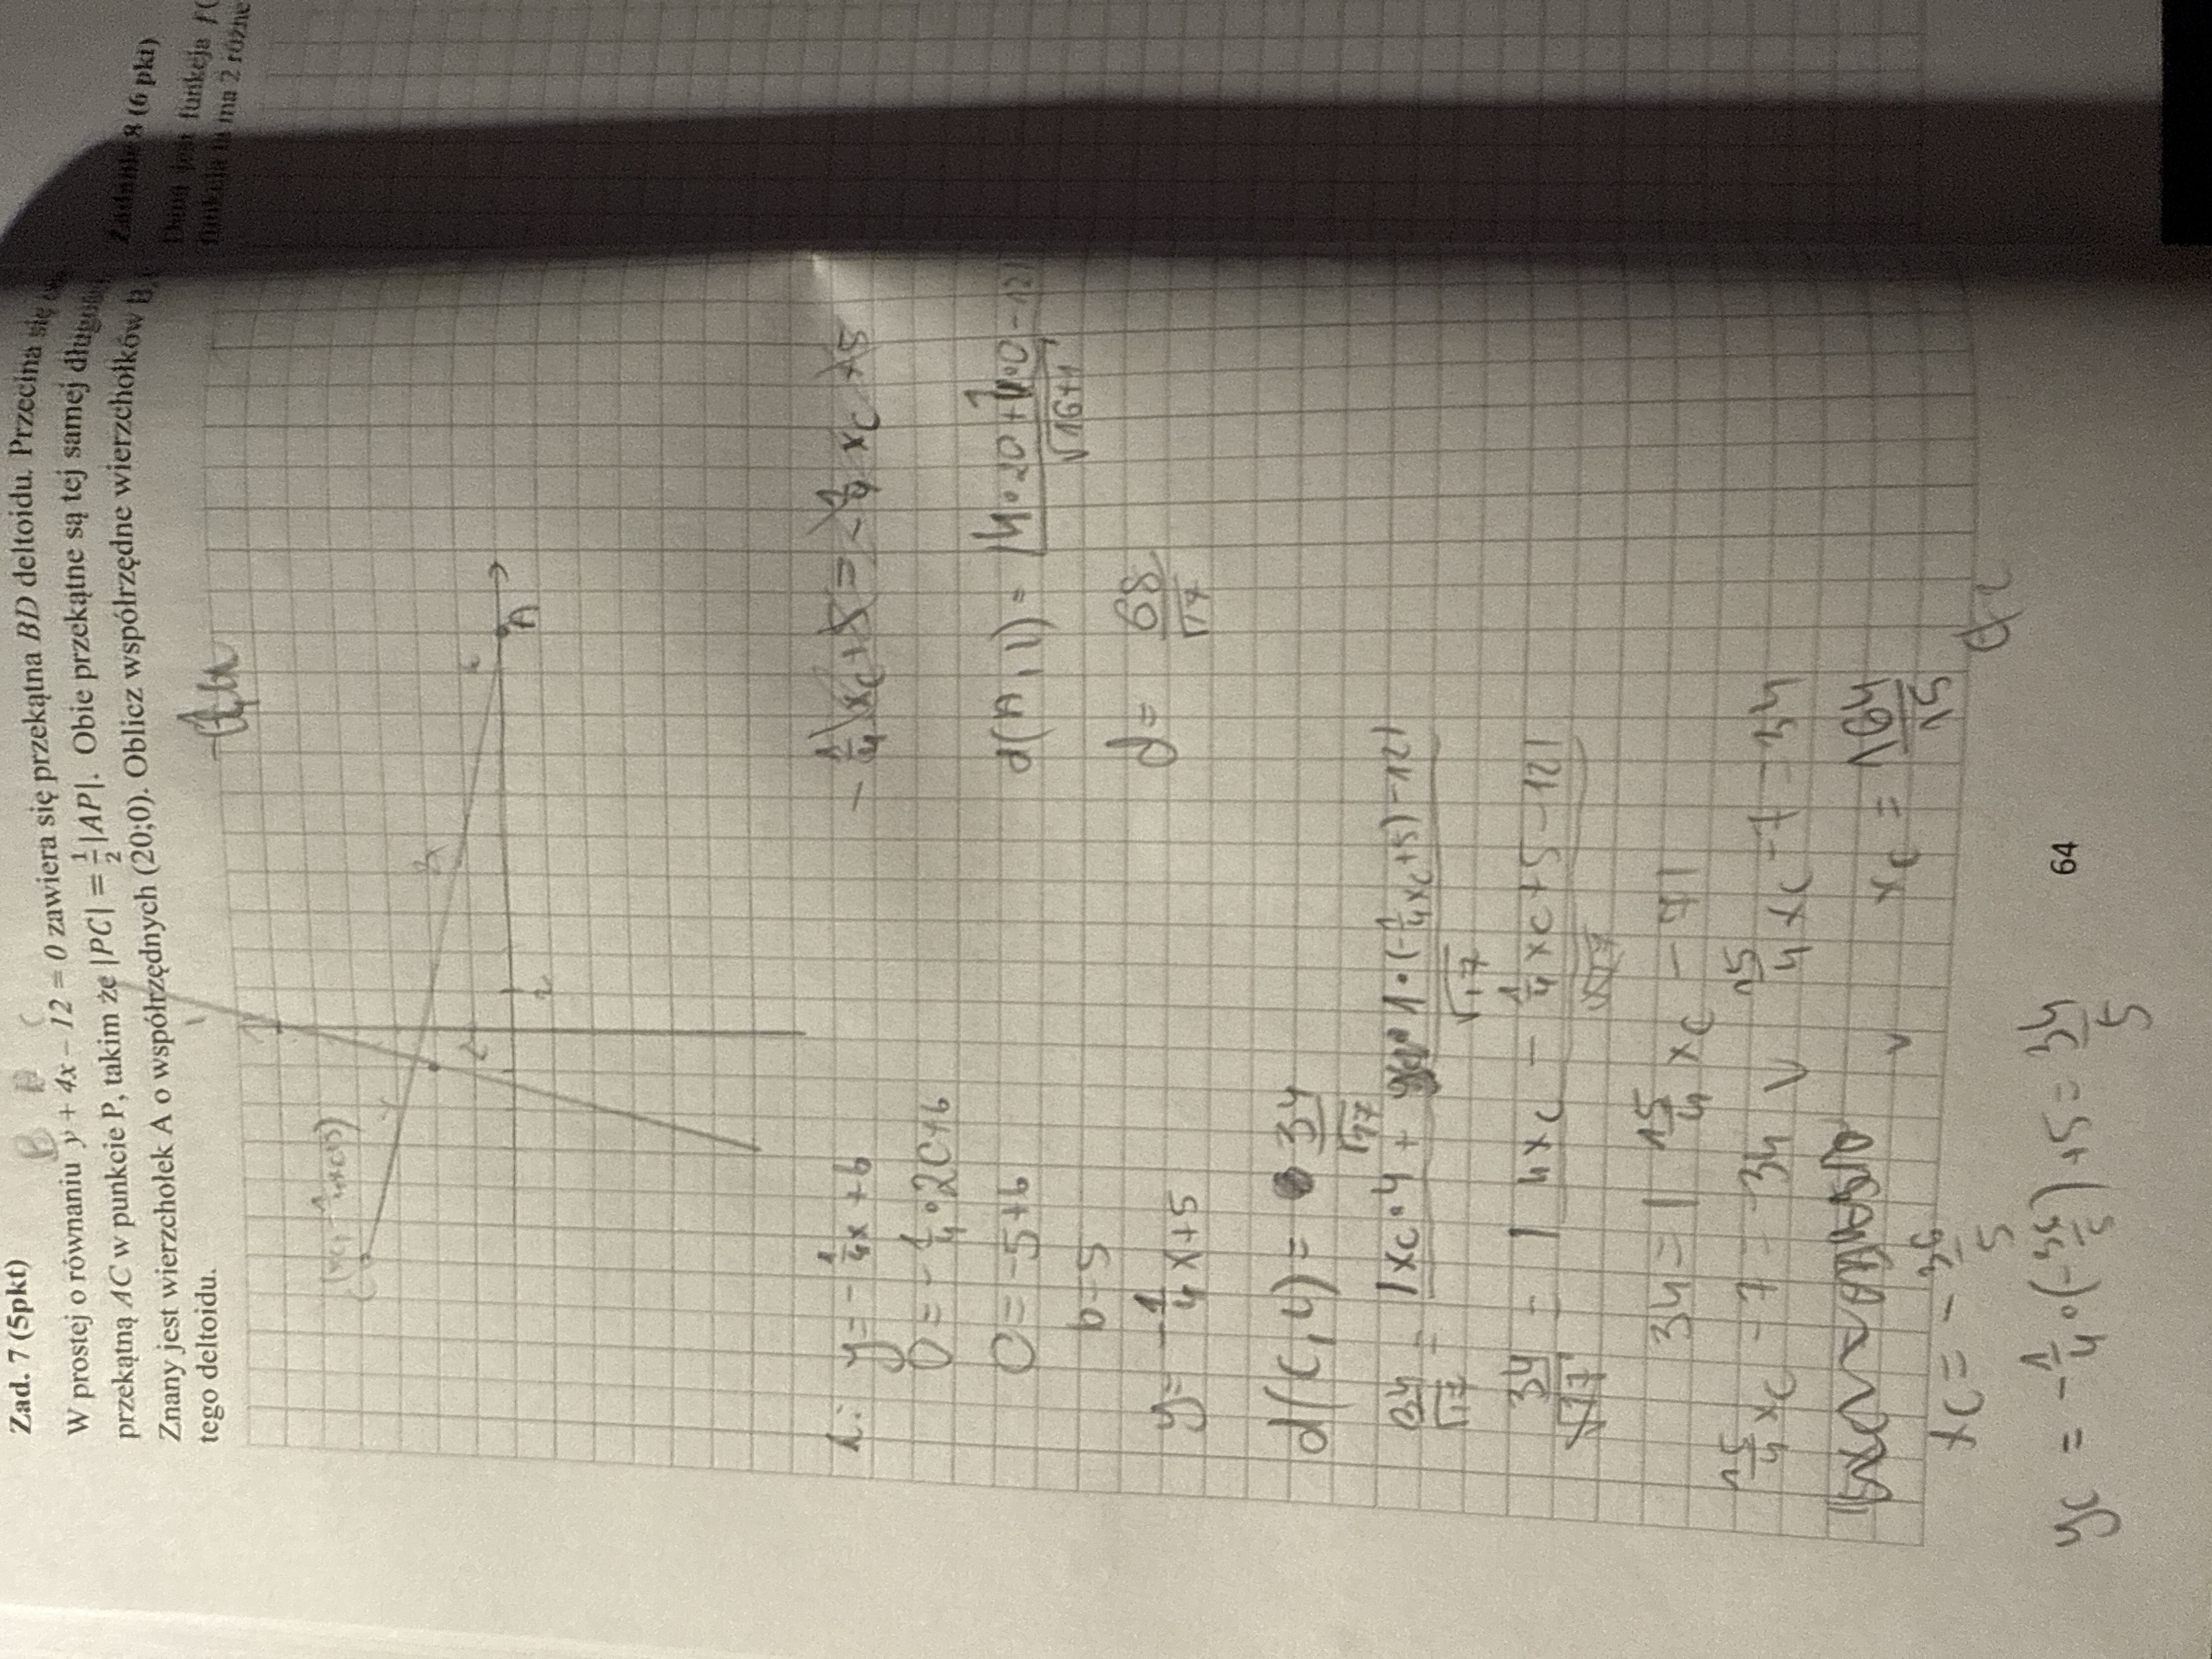 Zad. 7 (5pkt)
W prostej o równaniu y + 4x – 12 = 0 zawiera się przekątna BD deltoidu. Przecina się
przekątną AC w punkcie P, takim że |PC| = 1/2 |AP|. Obie przekątne są tej samej
Znany jest wierzchołek A o współrzędnych (20;0). Oblicz współrzędne wierzchołków B,
tego deltoidu.
Zadanie 8 (6 pkt)
Dana jest funkcja
funkcja ma 2 różne
A
k: y = -1/4 x + b
0 = -1/4 · 20 + b
0 = -5 + b
b = 5
y = -1/4 x + 5
d(A, l) = |4·20 + 1·0 - 12| / √16+1
d = 68/√17
d(C, l) = 34/√17
34/√17 = |xc·4 + 1·(-1/4 xc + 5) - 12| / √17
34/√17 = |4xc - 1/4 xc + 5 - 12| / √17
34 = |15/4 xc - 7|
15/4 xc - 7 = 34 v 15/4 xc - 7 = -34
v xc = 164/15
xc = -36/5
yc = -1/4 · (-36/5) + 5 = 34/5
64